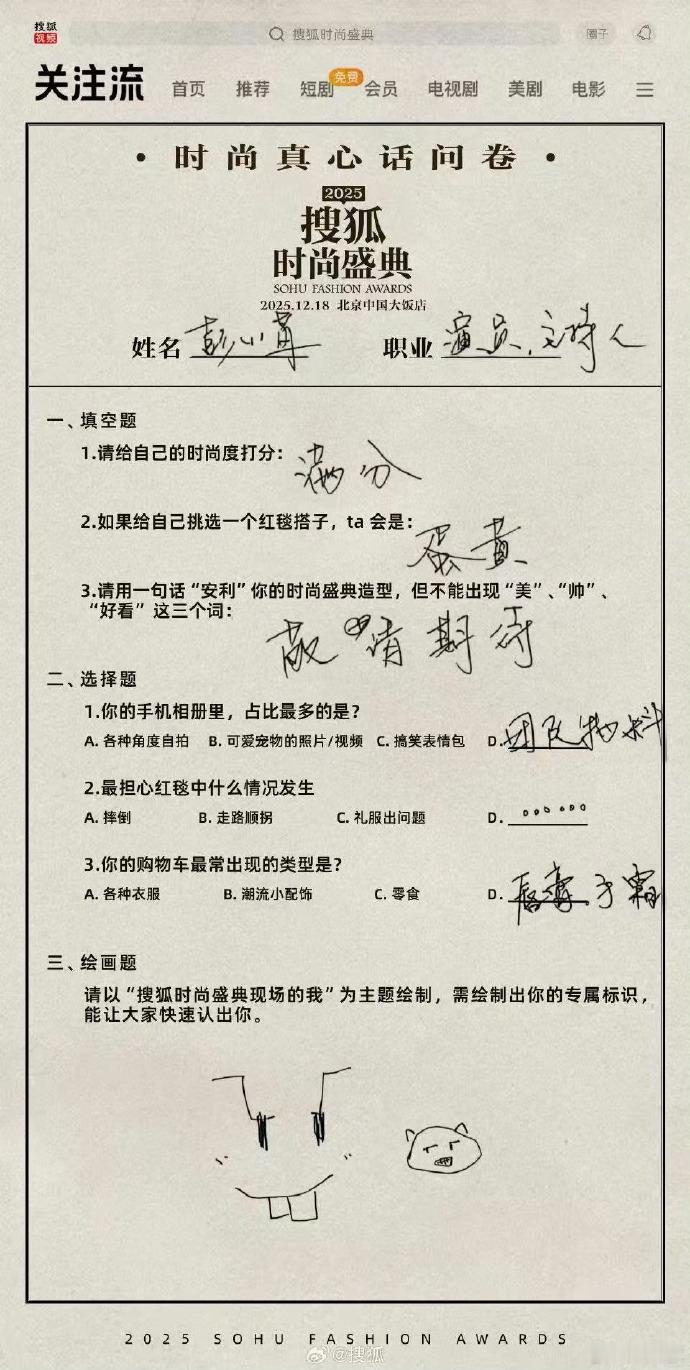 搜狐
视频
搜狐时尚盛典
圈子
关注流 首页 推荐 短剧 免费 会员 电视剧 美剧 电影
· 时尚真心话问卷 ·
2025
搜狐
时尚盛典
SOHU FASHION AWARDS
2025.12.18 北京中国大饭店
姓名 彭小苒 职业 演员、主持人
一、填空题
1.请给自己的时尚度打分： 满分
2.如果给自己挑选一个红毯搭子，ta 会是： 蛋黄
3.请用一句话“安利”你的时尚盛典造型，但不能出现“美”、“帅”、
“好看”这三个词： 敬请期待
二、选择题
1.你的手机相册里，占比最多的是？
A. 各种角度自拍 B. 可爱宠物的照片/视频 C. 搞笑表情包 D. 团队物料
2.最担心红毯中什么情况发生
A. 摔倒 B. 走路顺拐 C. 礼服出问题 D. 。。。。。。
3.你的购物车最常出现的类型是？
A. 各种衣服 B. 潮流小配饰 C. 零食 D. 唇膏、手霜
三、绘画题
请以“搜狐时尚盛典现场的我”为主题绘制，需绘制出你的专属标识，
能让大家快速认出你。
2025 SOHU FASHION AWARDS
@搜狐